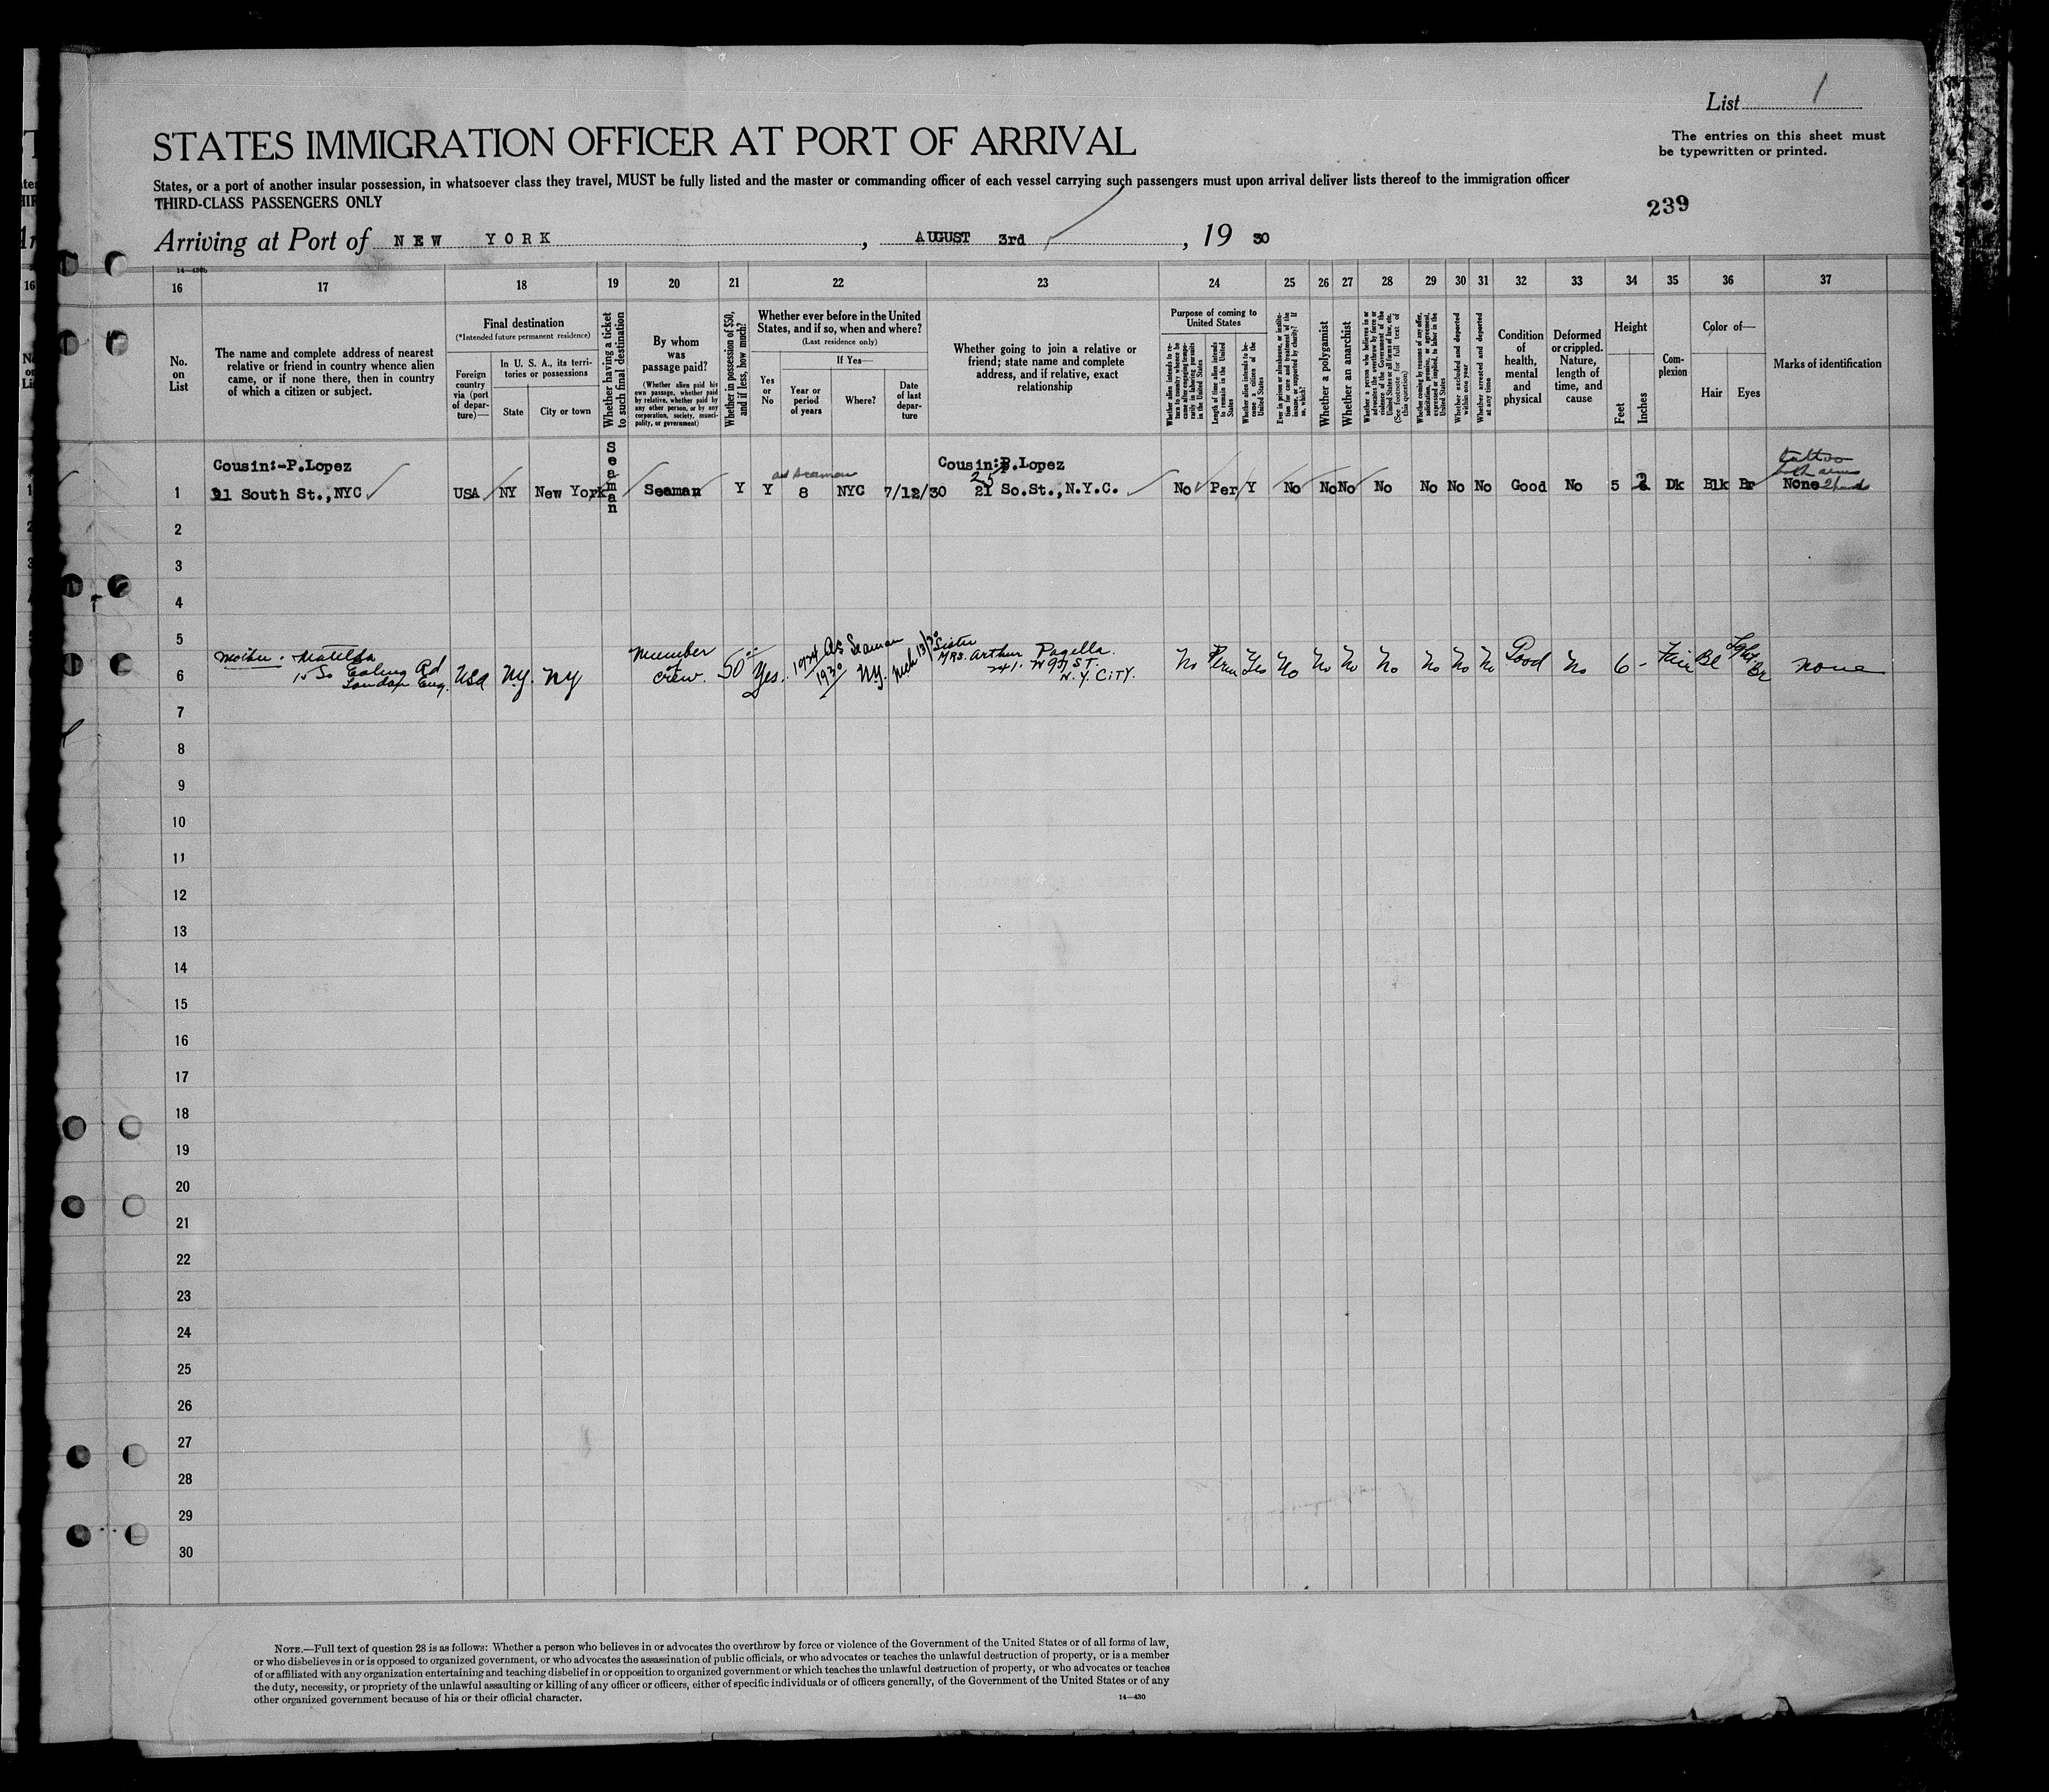 List 1
The entries on this sheet must
be typewritten or printed.
STATES IMMIGRATION OFFICER AT PORT OF ARRIVAL
States, or a port of another insular possession, in whatsoever class they travel, MUST be fully listed and the master or commanding officer of each vessel carrying such passengers must upon arrival deliver lists thereof to the immigration officer
THIRD-CLASS PASSENGERS ONLY
239
Arriving at Port of NEW YORK, AUGUST 3rd, 19 30
14-430b
16 17 18 19 20 21 22 23 24 25 26 27 28 29 30 31 32 33 34 35 36 37
No.
on
List
The name and complete address of nearest
relative or friend in country whence alien
came, or if none there, then in country
of which a citizen or subject.
Final destination
(*Intended future permanent residence)
Foreign
country
via (port
of depar-
ture)—
In U. S. A., its terri-
tories or possessions
State
City or town
Whether having a ticket
to such final destination
By whom
was
passage paid?
(Whether alien paid his
own passage, whether paid
by relative, whether paid by
any other person, or by any
corporation, society, munici-
pality, or government)
Whether in possession of $50,
and if less, how much?
Whether ever before in the United
States, and if so, when and where?
(Last residence only)
Yes
or
No
If Yes—
Year or
period
of years
Where?
Date
of last
depar-
ture
Whether going to join a relative or
friend; state name and complete
address, and if relative, exact
relationship
Purpose of coming to
United States
Whether alien intends to re-
turn to country whence he
came after engaging tempo-
rarily in laboring pursuits
in the United States
Length of time alien intends
to remain in the United
States
Whether alien intends to be-
come a citizen of the
United States
Ever in prison or almshouse, or institu-
tion for care and treatment of the
insane, or supported by charity? If
so, which?
Whether a polygamist
Whether an anarchist
Whether a person who believes in or
advocates the overthrow by force or
violence of the Government of the
United States or all forms of law, etc.
(See footnote for full text of
this question)
Whether coming by reasons of any offer,
solicitation, promise or agreement,
expressed or implied, to labor in the
United States
Whether excluded and deported
within one year
Whether arrested and deported
at any time
Condition
of
health,
mental
and
physical
Deformed
or crippled.
Nature,
length of
time, and
cause
Height
Feet
Inches
Com-
plexion
Color of—
Hair
Eyes
Marks of identification
Cousin:-P.Lopez
1 21 South St.,NYC USA NY New York Seaman Seaman Y Y as seaman 8 NYC 7/12/30
Cousin:P.Lopez
25
21 So.St.,N.Y.C. No Per Y No No No No No No No Good No 5 2 Dk Blk Br
tattoo
both arms
None
2
3
4
5
6
Mother. Matilda
15 So Ealing Rd
London Eng.
USA N.Y. NY
Member
of
crew. 50 Yes. 1924 as Seaman
1930 NY. Mch 13/30
Sister
MRS. Arthur Pagella.
241. W 97 ST.
N.Y. CITY.
No Perm Yes No No No No No No No Good No 6 - Fair Bl Light
Br none
7
8
9
10
11
12
13
14
15
16
17
18
19
20
21
22
23
24
25
26
27
28
29
30
NOTE.—Full text of question 28 is as follows: Whether a person who believes in or advocates the overthrow by force or violence of the Government of the United States or of all forms of law,
or who disbelieves in or is opposed to organized government, or who advocates the assassination of public officials, or who advocates or teaches the unlawful destruction of property, or is a member
of or affiliated with any organization entertaining and teaching disbelief in or opposition to organized government or which teaches the unlawful destruction of property, or who advocates or teaches
the duty, necessity, or propriety of the unlawful assaulting or killing of any officer or officers, either of specific individuals or of officers generally, of the Government of the United States or of any
other organized government because of his or their official character.
14—430